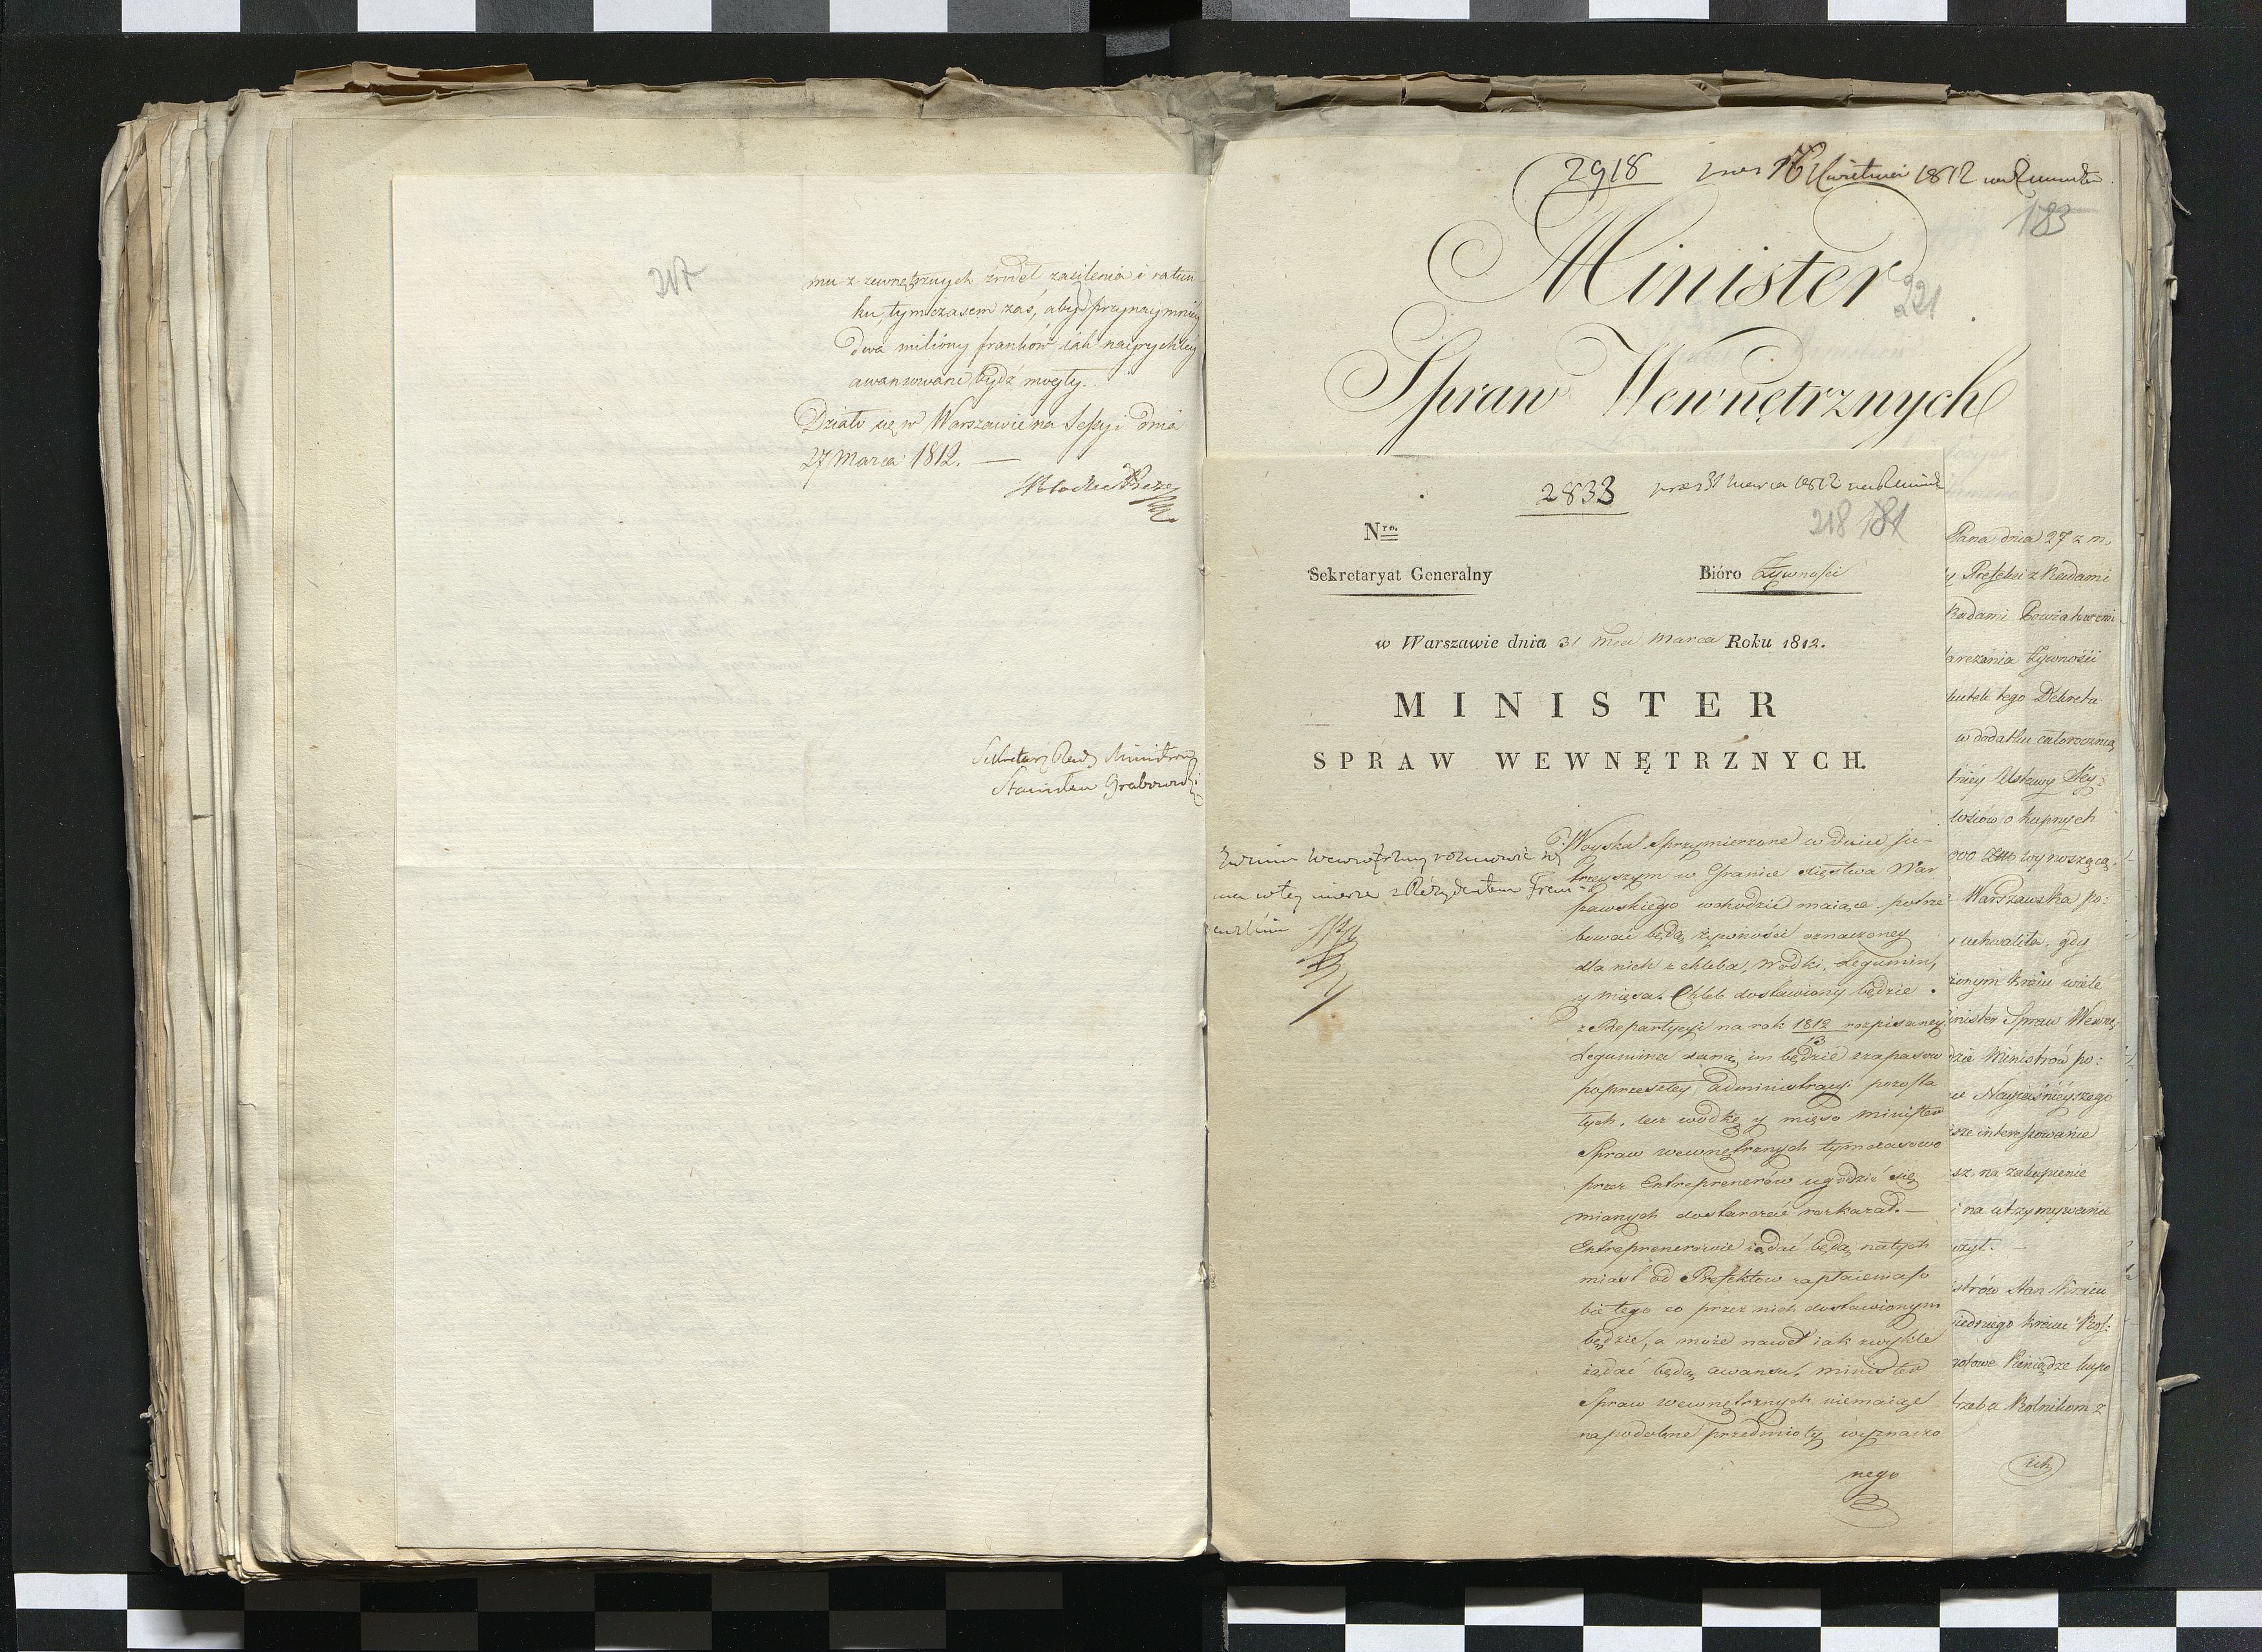 217
mu z zewnętrznych źrodeł zasilenia i ratun
ku, tymczasem zaś, aby przynaymniey
dwa miliony franków iak nayprychley
awansowane bydź mogły.
Działo się w Warszawie na Sessyi dnia
27 Marca 1812. —
Sekretarz Rady Ministrow
Stanisław Grabowski
2918 Kwietnia 1812
183
Minister
221
Spraw Wewnętrznych
2833 31 Marca 1812
218 181
Nro.
Sekretaryat Generalny Bióro Żywności
w Warszawie dnia 31 Mca Marca Roku 1812.
MINISTER
SPRAW WEWNĘTRZNYCH.
Woyska Sprzymierzone w dniu ju-
trzeyszym w Granice Xięstwa War
szawskiego wchodzić maiące potrze
bować będą żywności oznaczoney
dla nich z chleba, wodki, Legumin,
y mięsa. Chleb dostawiony będzie
z Repartycyi na rok 1812 rozpisaney
13
Legumina daną im będzie z zapasow
po przeszłey administracyi pozosta
łych, lecz wodkę y mięso Minister
Spraw wewnętrznych tymczasowo
przez Entreprenerów ugodzić się
mianych dostarczać rozkazał. —
Entreprenerowie żądać będą natych
miast od Prefektow zapłacenia so
bie tego co przez nich dostawionym
będzie, a może nawet iak zwykle
żądać będą awansu. Minister
Spraw wewnętrznych niemaiąc
na podobne przedmioty wyznaczo
nego
z Rezydentem Fran
cuzkim
Pana dnia 27 z m.
Prefekci z Radami
Radami Powiatowemi
arczania żywności
kutek tego Dekretu
w dodatku całoroczną
niey Ustawy Sey:
łosciow o kupnych
000 wynoszącą
Warszawska po:
uchwaliła, gdy
zonym kraiu wiele
inister Spraw Wewnę
dzie Ministrów po:
w Nayiaśnieyszego
sze interesowanie
sz na zakupienie
i na utrzymywanie
wzył. —
istrów Stan Kraiu
iednego kraiu Rol:
gotowe Pieniądze kupo
trzeba Rolnikom z
ich